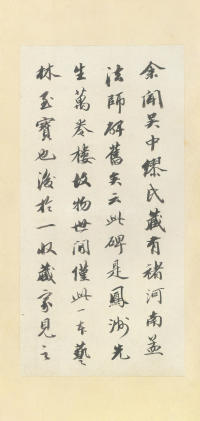 余聞吳中繆氏藏有褚河南孟
法師碑舊矣云此碑是鳳洲先
生萬卷樓故物世間僅此一本藝
林至寶也後於一收藏家見之